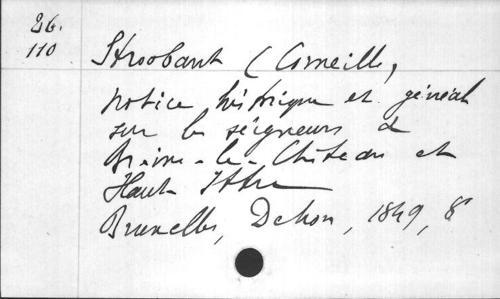 26.
110
Stroobant (Corneille,
notice histrique et généal
sur les séigneurs de
Braine-le-Château et
Haut Ittre
Bruxelles, Dehou, 1849, 8°